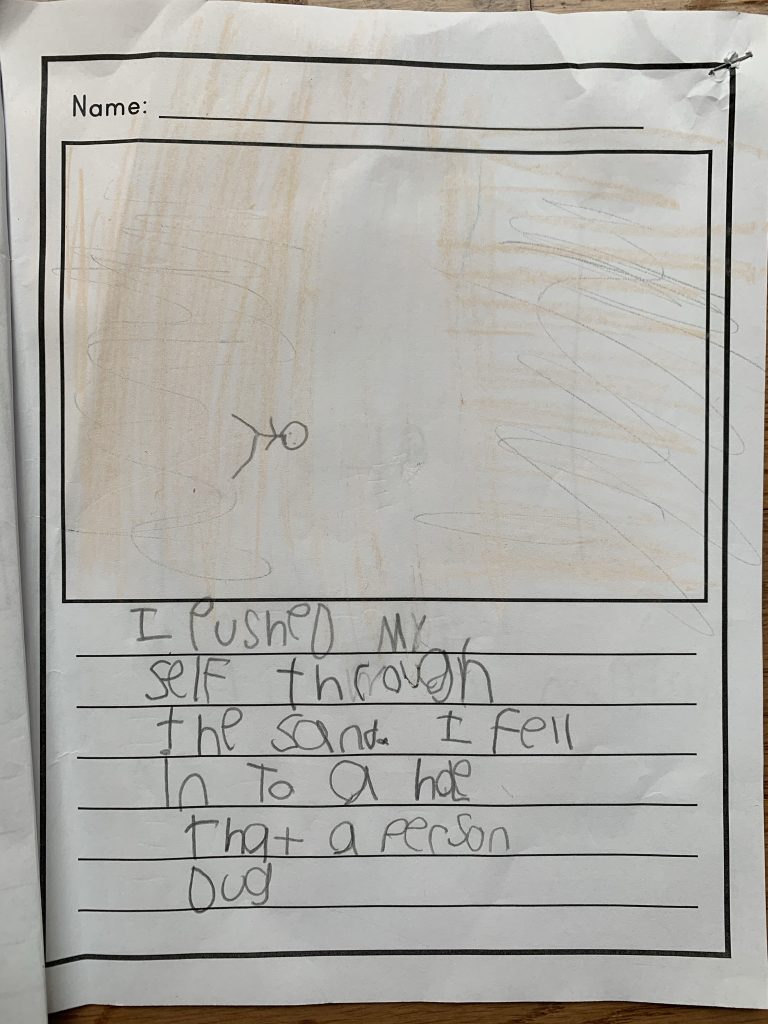 Name:
I PusheD MY
self through
the sand. I fell
In To a hole
that a Person
Dug